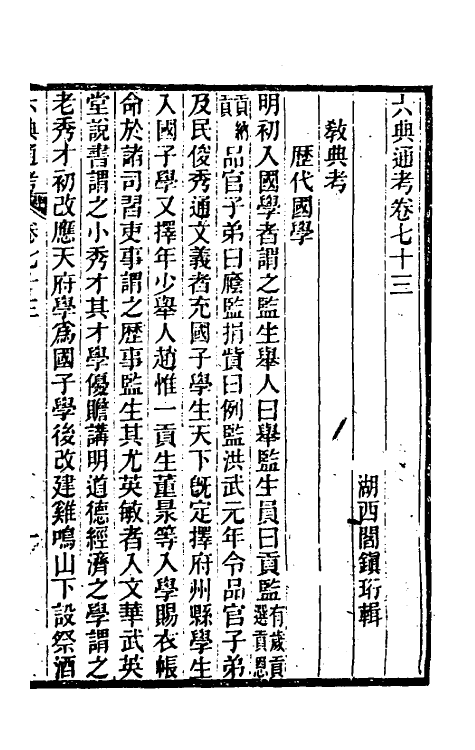 六典通考卷七十三
湖西閻鎭珩輯
敎典考
歴代國學
明初入國學者謂之監生舉人曰舉監生員曰貢監有歲貢選貢恩
貢納貢品官子弟曰廕監捐貲曰例監洪武元年令品官子弟
及民俊秀通文義者充國子學生天下旣定擇府州縣學生
入國子學又擇年少舉人趙惟一貢生董㬎等入學賜衣帳
命於諸司習吏事謂之歴事監生其尤英敏者入文華武英
堂說書謂之小秀才其才學優贍講明道德經濟之學謂之
老秀才初改應天府學爲國子學後改建雞鳴山下設祭酒
六典通考 卷七十三 一